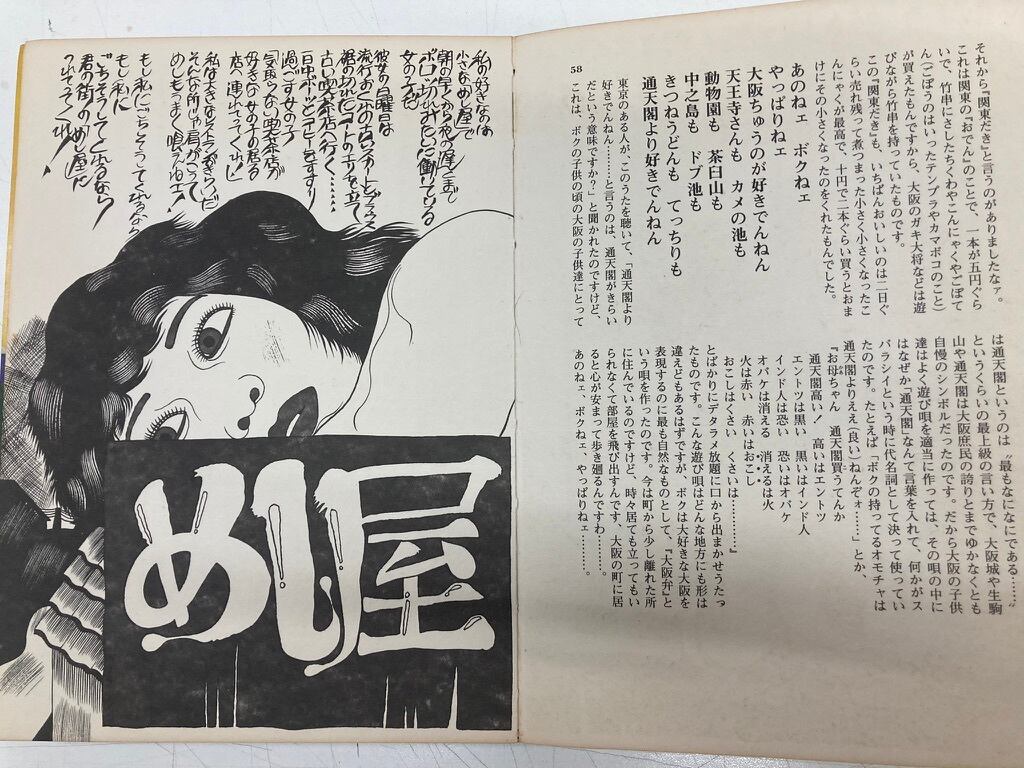 それから『関東だき』と言うのがありましたなァ。
これは関東の『おでん』のことで、一本が五円ぐら
いで、竹串にさしたちくわやこんにゃくやごぼて
ん(ごぼうのはいったテンプラやカマボコのこと)
が買えたもんですから、大阪のガキ大将などは遊
びながら竹串を持っていたものです。
この『関東だき』も、いちばんおいしいのは二日ぐ
らい売れ残って煮つまった小さく小さくなったこ
んにゃくが最高で、十円で二本ぐらい買うとおま
けにその小さくなったのをくれたもんでした。
あのねェ ボクねェ
やっぱりねェ
大阪ちゅうのが好きでんねん
天王寺さんも カメの池も
動物園も 茶臼山も
中之島も ドブ池も
きつねうどんも てっちりも
通天閣より好きでんねん
東京のある人が、このうたを聴いて、「通天閣より
好きでんねん……と言うのは、通天閣がきらい
だという意味ですか?」と聞かれたのですけど、
これは、ボクの子供の頃の大阪の子供達にとって
58
は通天閣というのは〝最もなになにである……〟
というくらいの最上級の言い方で、大阪城や生駒
山や通天閣は大阪庶民の誇りとまでゆかなくとも
自慢のシンボルだったのです。だから大阪の子供
達はよく遊び唄を適当に作っては、その唄の中に
はなぜか「通天閣」なんて言葉を入れて、何かがス
バラシイという時に代名詞として決って使ってい
たのです。たとえば「ボクの持ってるオモチャは
通天閣よりええ(良い)ねんぞォ……」とか、
『お母ちゃん 通天閣買うてんか
通天閣高い! 高いはエントツ
エントツは黒い 黒いはインド人
インド人は恐い 恐いはオバケ
オバケは消える 消えるは火
火は赤い 赤いはおこし
おこしはくさい くさいは………』
とばかりにデタラメ放題に口から出まかせうたっ
たものです。こんな遊び唄はどんな地方にも形は
違えどもあるはずですが、ボクは大好きな大阪を
表現するのに最も自然なものとして、『大阪弁』と
いう唄を作ったのです。今は町から少し離れた所
に住んでいるのですけど、時々居ても立ってもい
られなくて部屋を飛び出すんです、大阪の町に居
ると心が安まって歩き廻るんですわ………。
あのねェ、ボクねェ、やっぱりねェ………。
私の好きなのは
小さなめし屋で
朝の早くから夜の遅くまで
ボロッ切れみたいに働いている
女の子だぜ
彼女の日曜日は
流行おくれの古いスカートとブラウス
裾の切れたコートのエリを立て
古い喫茶店へ行く……
一日中ポップコーヒーをすすり
過ごす女の子
「気取らない喫茶店が
好きな女の子の居る
店へ連れてってくれ!
そんな所じゃ肩がこって
めしもうまく喰えねェ!
もし私にごちそうしてくれるなら
もし私に
ごちそうしてくれるなら!
君の街のめし屋に
つれてってくれ!
めし屋